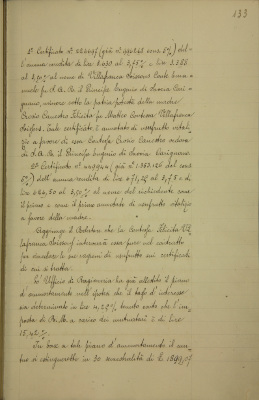 133
1° Certificato n°
l'annua rendita di lire 2.030 al 3,75% e lire
al 3,50% al nome di Villafranca Soissons Conte Emanuele fu S.A.R. il Principe Eugenio di Savoia Carignano, minore sotto la patria potestà della madre
Crosio Canestro Felicita fu
Soissons. Tale certificato è annotato di usufrutto vitalizio a favore di essa Contessa Crosio Canestro vedova
di S.A.R. il Principe Eugenio di Savoia Carignano.
2° Certificato n°
5%) dell'annua rendita di lire 671,25 al 3,75 e di
lire al 3,50% al nome del richiedente come
il primo e come il primo annotato di usufrutto vitalizio
a favore della madre.
Aggiunge il Relatore che la Contessa Felicita Villafranca Soissons interverrà essa pure nel contratto
per vincolare le sue ragioni di usufrutto sui certificati
di cui si tratta.
L'Ufficio di Ragioneria ha già allestito il piano
d'ammortamento nell'ipotesi che il tasso d'interesse
sia determinato in lire 4,25%, tenuto conto che l'imposta di R.M. a carico dei mutuatari è di lire
15,42%.
In base a tale piano d'ammortamento il mutuo si estinguerebbe in 30 semestralità di L.